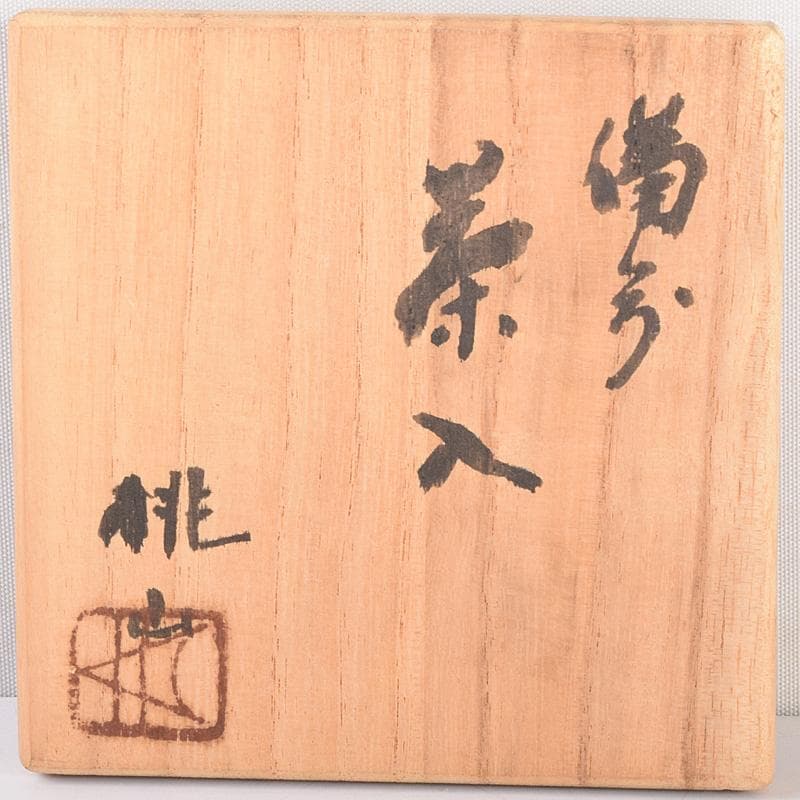 備前
茶入
桃山